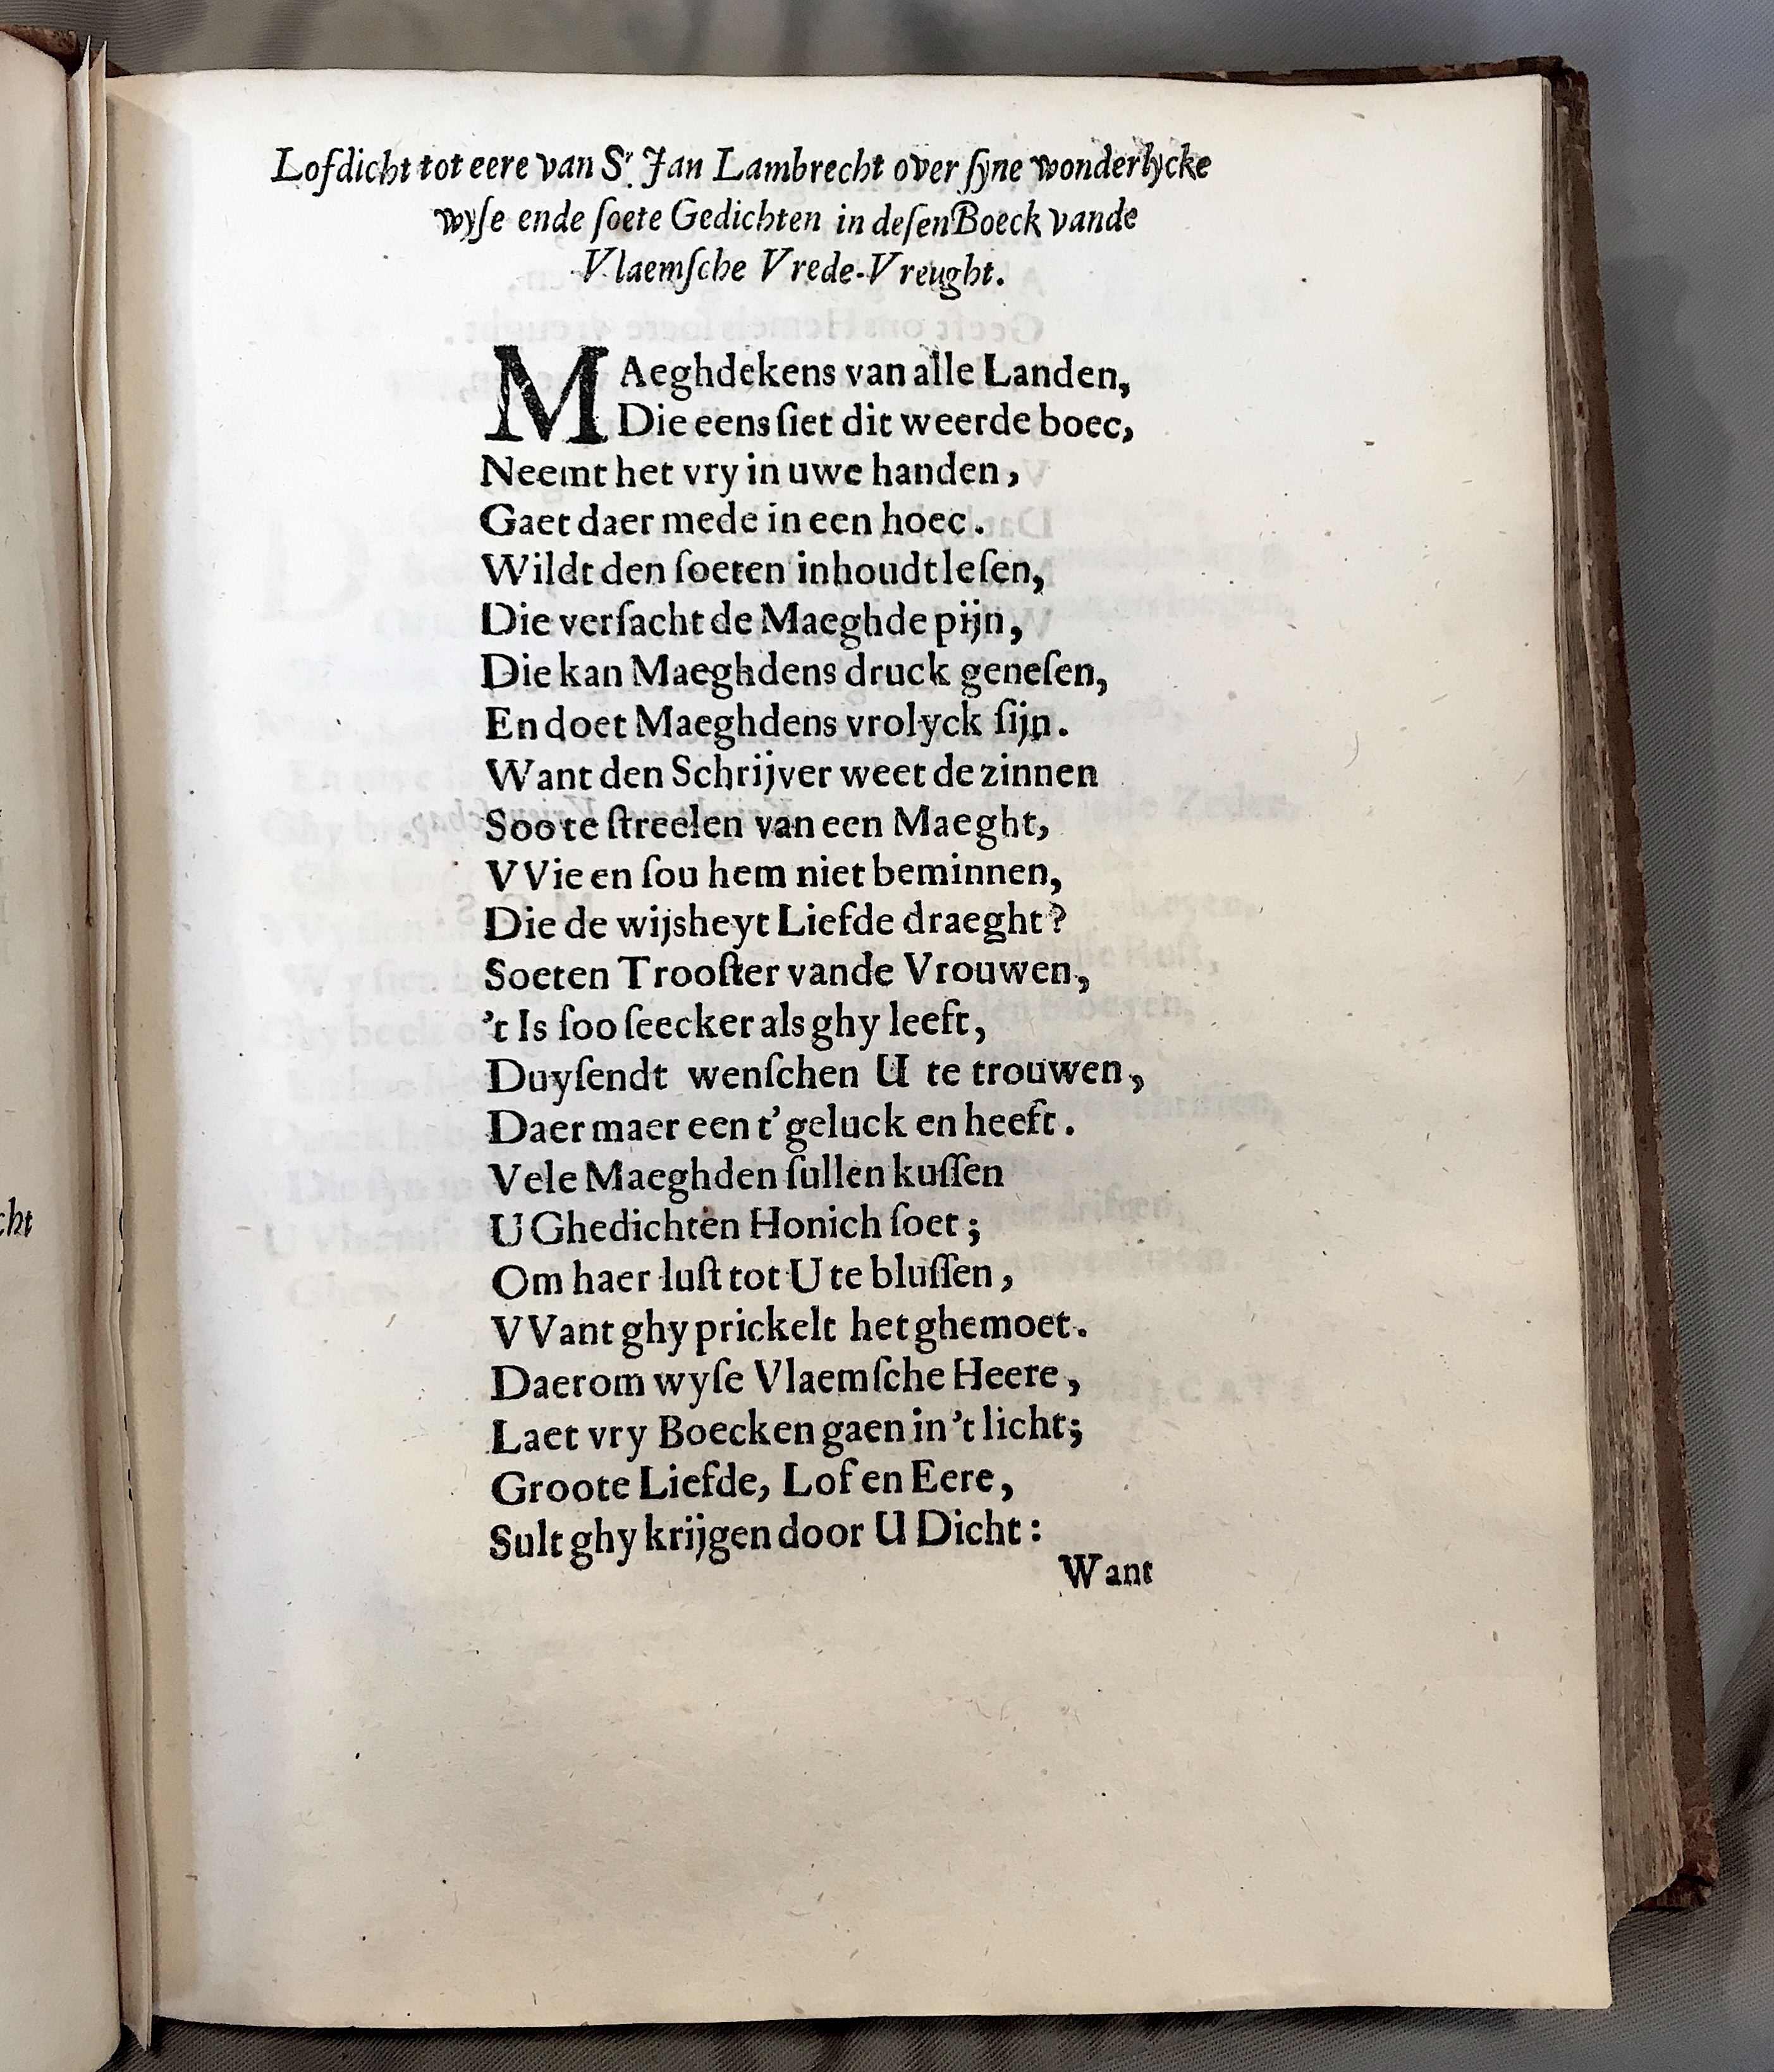 Lofdicht tot eere van Sr. Jan Lambrecht over ſyne wonderlycke
wyſe ende ſoete Gedichten in deſen Boeck vande
Vlaemſche Vrede-Vreught.
MAeghdekens van alle Landen,
Die eens ſiet dit weerde boec,
Neemt het vry in uwe handen,
Gaet daer mede in een hoec.
Wildt den ſoeten inhoudt leſen,
Die verſacht de Maeghde pijn,
Die kan Maeghdens druck geneſen,
En doet Maeghdens vrolyck ſijn.
Want den Schrijver weet de zinnen
Soo te ſtreelen van een Maeght,
VVie en ſou hem niet beminnen,
Die de wijsheyt Liefde draeght?
Soeten Trooſter vande Vrouwen,
't Is ſoo ſeecker als ghy leeft,
Duyſendt wenſchen U te trouwen,
Daer maer een t' geluck en heeft.
Vele Maeghden ſullen kuſſen
U Ghedichten Honich ſoet;
Om haer luſt tot U te bluſſen,
VVant ghy prickelt het ghemoet.
Daerom wyſe Vlaemſche Heere,
Laet vry Boecken gaen in 't licht;
Groote Liefde, Lof en Eere,
Sult ghy krijgen door U Dicht:
Want
cht